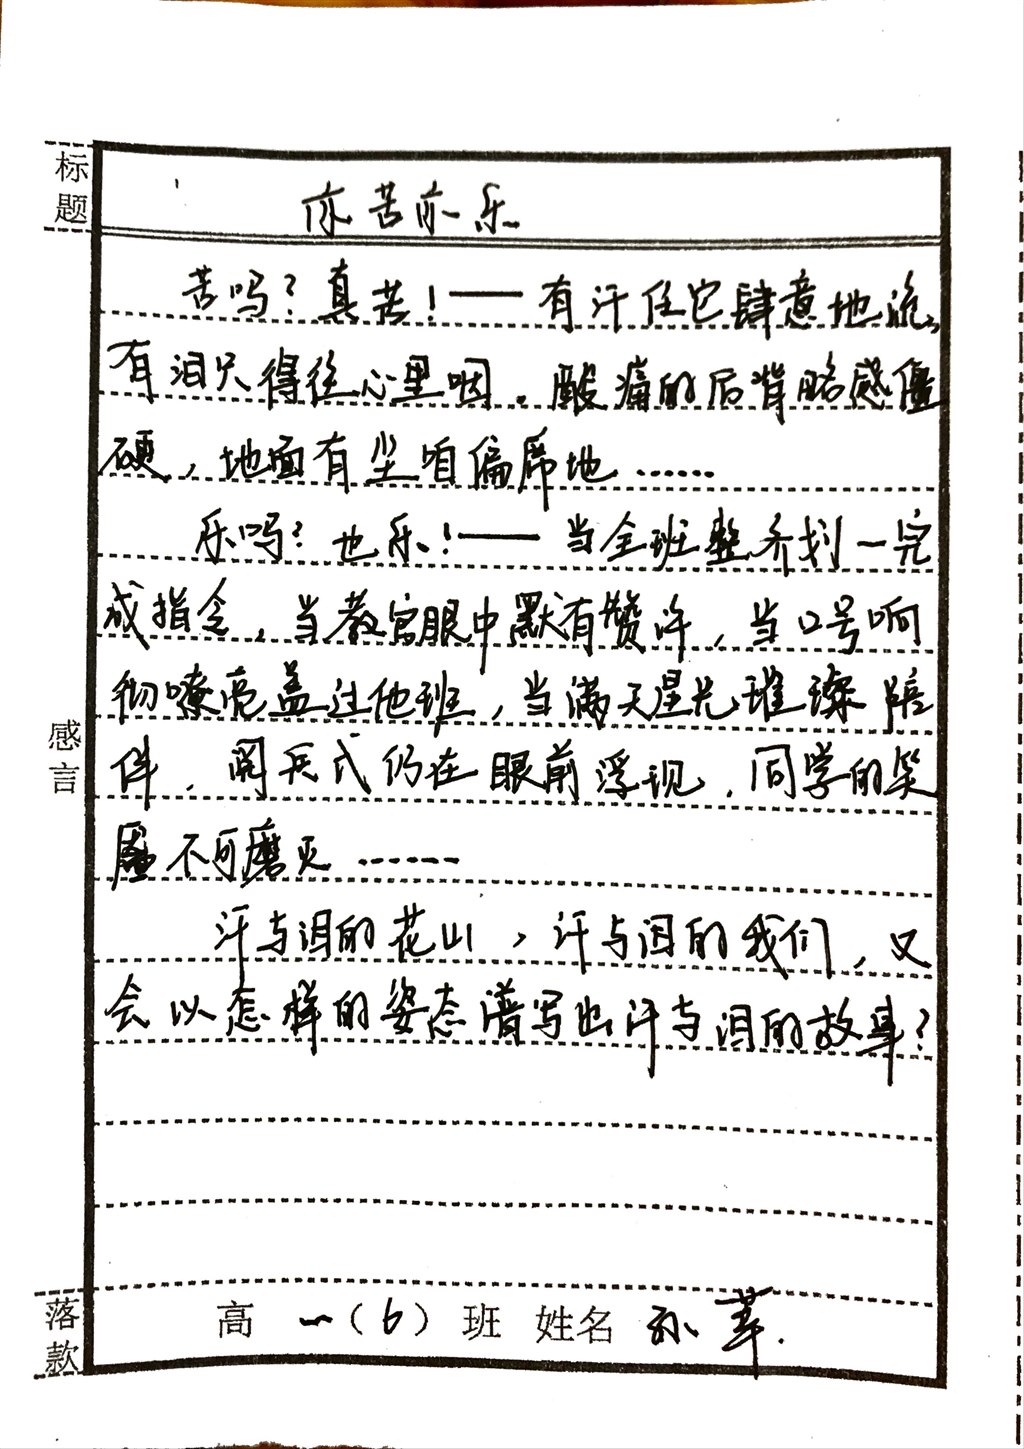 标题
亦苦亦乐
苦吗？真苦！——有汗任它肆意地流，
有泪只得往心里咽。酸痛的后背略感僵
硬，地面有尘咱偏席地……
乐吗？也乐！——当全班整齐划一完
成指令，当教官眼中默有赞许，当口号响
彻嘹亮盖过他班，当满天星光璀璨陪
伴，阅兵式仍在眼前浮现，同学的笑
靥不可磨灭……
汗与泪的花山，汗与泪的我们，又
会以怎样的姿态谱写出汗与泪的故事？
感言
落款
高一（6）班 姓名 孙苹